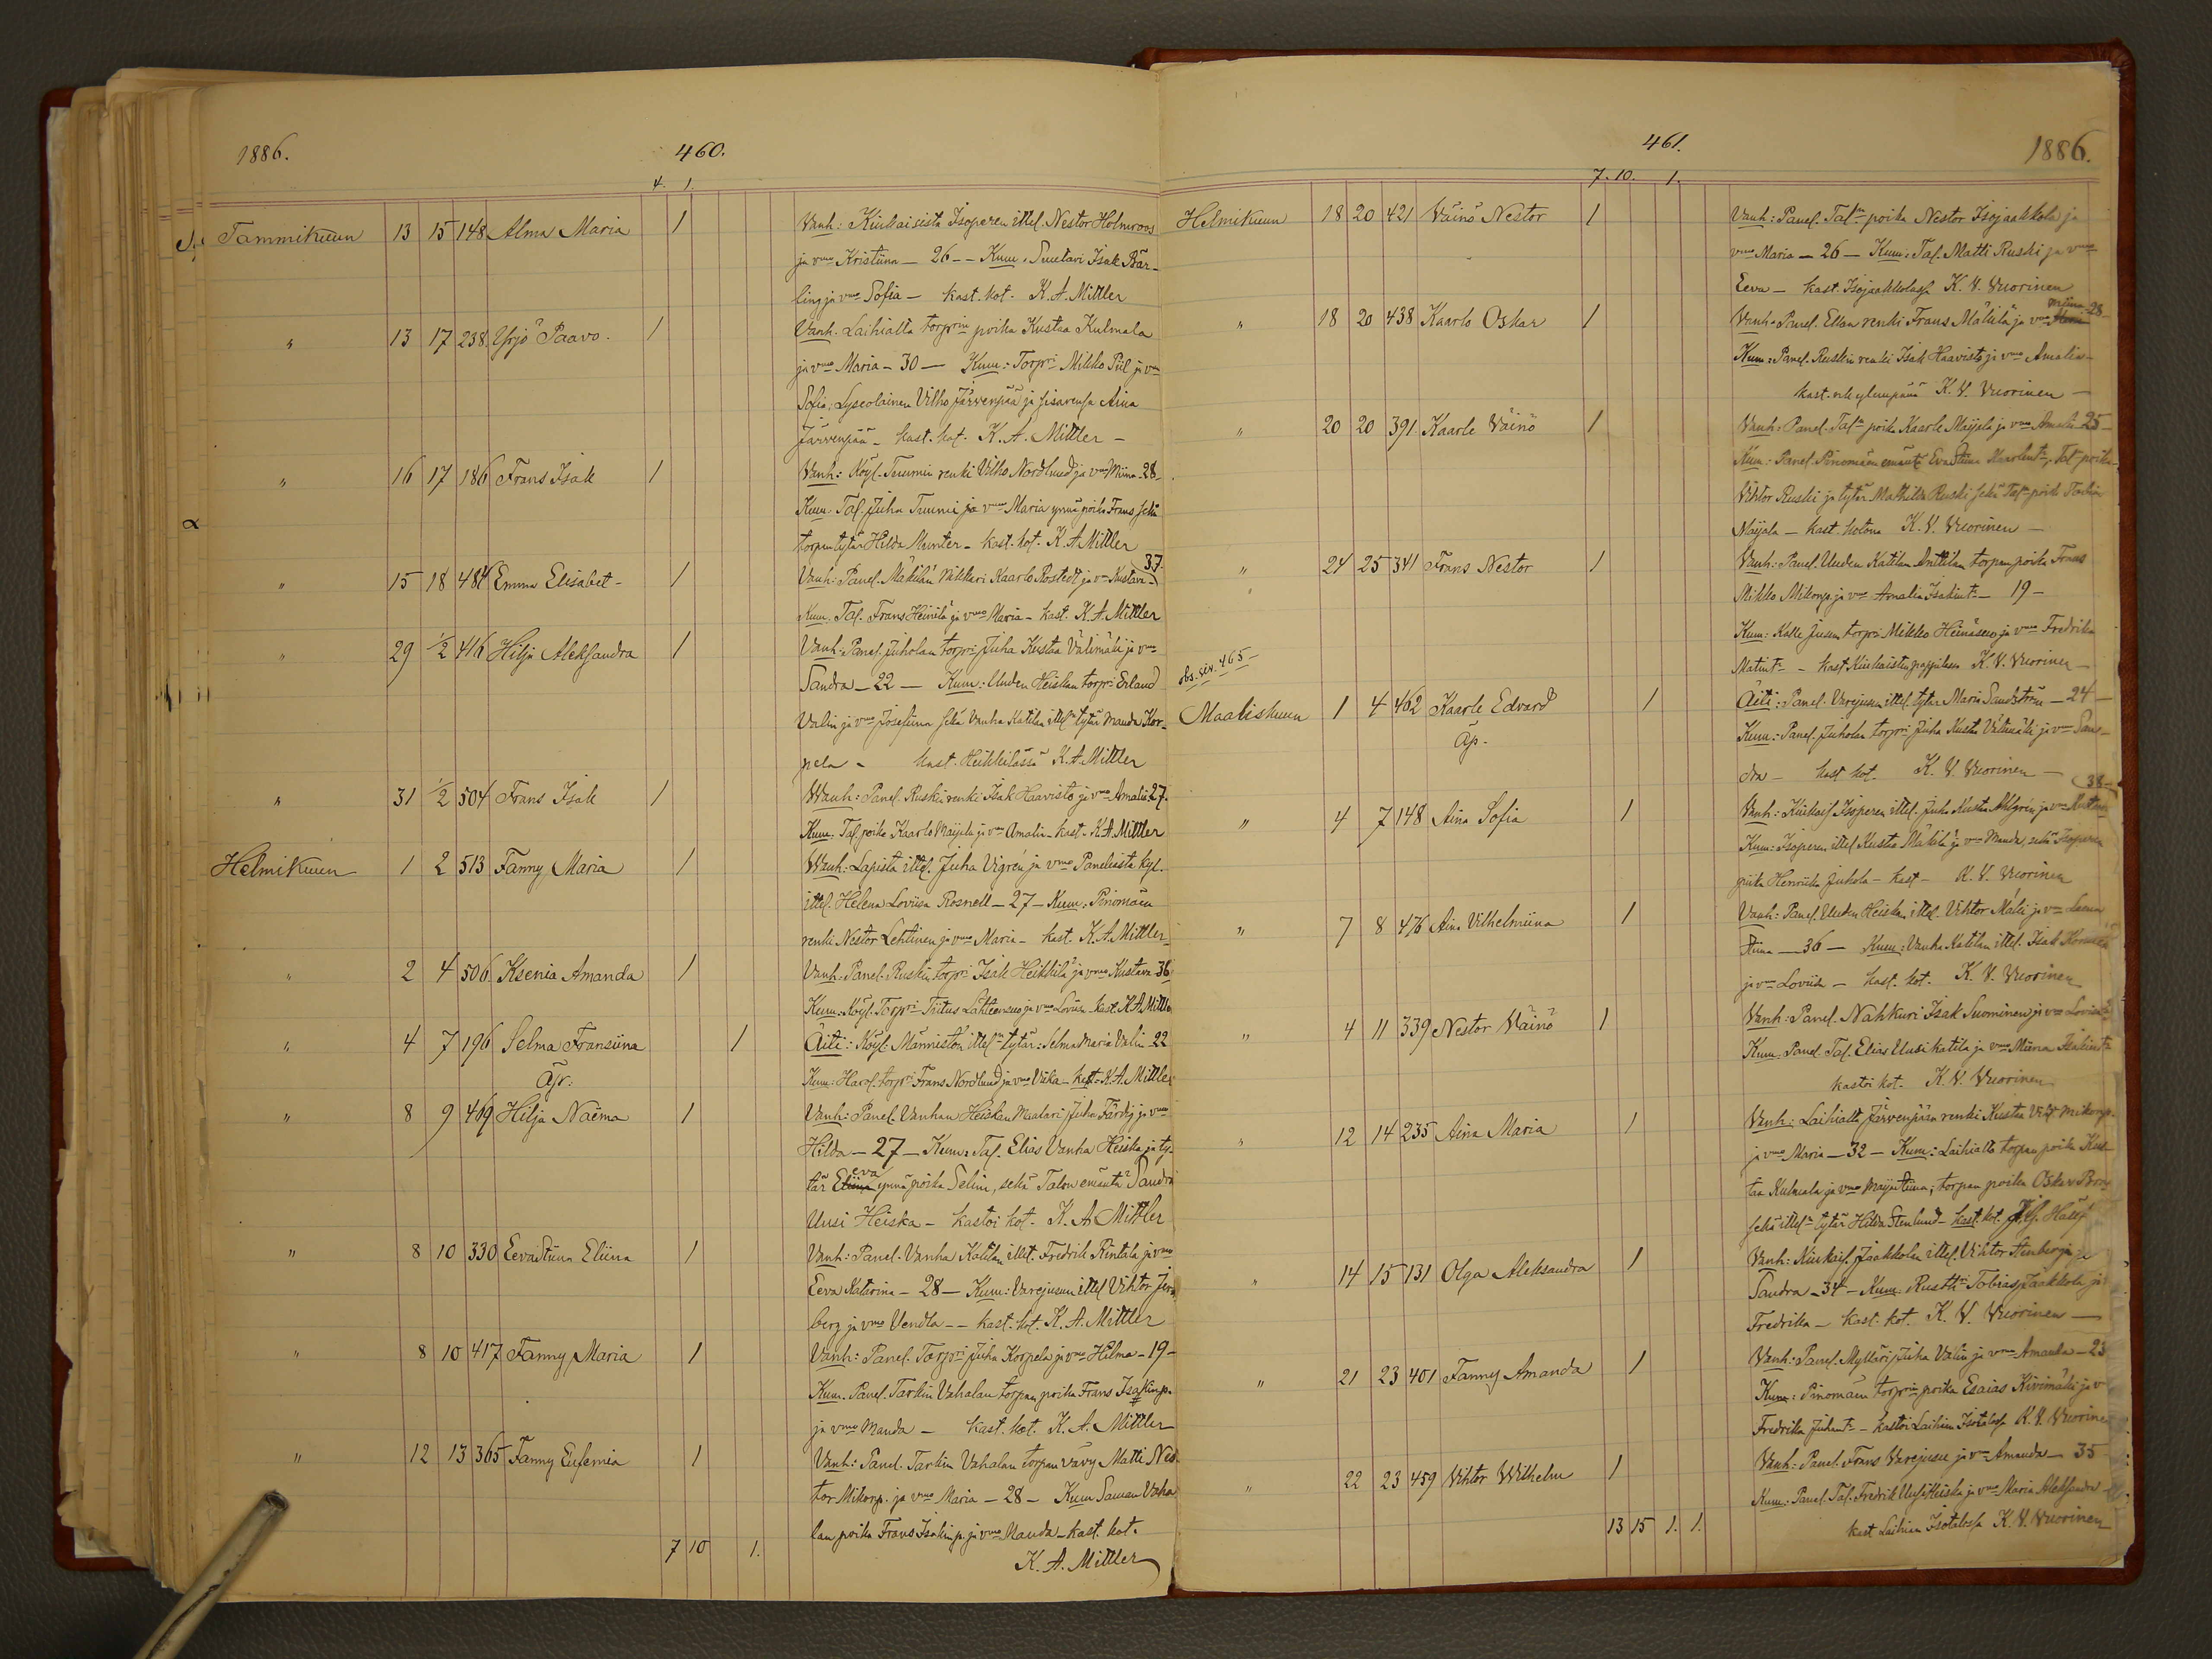 1886.
460.
4. 1.
Tammikuun 13 15 148 Alma Maria 1 Vanh: Kiukaisista Isoperen ittel. Nestor Holmroos
ja vmo Kristiina - 26 - - Kum. Isak Bär-
ling ja vmo Sofia - kast. kot. K. A. Mittler
" 13 17 238 Yrjö Paavo. 1 Vanh. Laihialta torprin poika Kustaa Kulmala
ja vmo Maria - 30 - Kum: Torpri Mikko Piil ja vm
Sofia, Lyseolainen Vilho Järvenpää ja sisarensa Aina
Järvenpää - kast. kot. K. A. Mittler -
" 16 17 186 Frans Isak 1 Vanh: Köyl. Tuumin renki Vilho Nordlund ja vmo Miina - 28 -
Kum. Tal. Juha Tuumi ja vmo Maria ynnä poika Frans sekä
torpan tytär Hilda Munter - kast. kot. K. A. Mittler
" 15 18 484 Emma Elisabet - 1 Vanh: Panel. Mäkilän Nikkari Kaarlo Rostedt ja vm Kustava - 37.
Kum. Tal. Frans Heinilä ja vmo Maria - kast. K. A. Mittler
" 29 1/2 416 Hilja Aleksandra 1 Vanh: Panel. Juholan torpri Juha Kustaa Välimäki ja vmo
Sandra - 22 - Kum: Uuden Heiskan torpri Erland
Valin ja vmo Josefiina sekä Vanha Katilan ittel. tytär Manda Kor-
pela - kast. Heikkilässä K. A. Mittler
" 31 1/2 504 Frans Isak 1 Vanh: Panel. Ruskin renki Isak Haavisto ja vmo Amalia 27.
Kum. Tal. poika Kaarlo Maijala ja vm Amalia - kast. K. A. Mittler
Helmikuun 1 2 513 Fanny Maria 1 Vanh: Lapista ittel. Juha Vigrén ja vmo Paneliasta kyl.
ittel. Helena Loviisa Rosnell - 27 - Kum: Pinomäen
renki Nestor Lehtinen ja vmo Maria - kast. K. A. Mittler
" 2 4 506 Ksenia Amanda 1 Vanh. Panel. Ruskin torpri Isak Heikkilä ja vmo Kustava 36
Kum. Köyl. Torpri Tiitus Lähteensuo ja vmo Loviisa - kast. K. A. Mittler
" 4 7 196 Selma Fransiina 1 Äiti: Köyl. Männistön ittel. tytär: Selma Maria Valin - 22
Äpr: Kum: Harol. torpri Frans Nordlund ja vmo Viika - kast. K. A. Mittler
" 8 9 469 Hilja Naëma 1 Vanh: Panel. Vanhan Heiskan Maalari Juha Färdig ja vmo
Hilda - 27 - Kum: Tal. Elias Vanha Heiska ja ty-
tär Eeva ynnä poika Selim, sekä Talon emäntä Sandra
Uusi Heiska - kastoi kot. K. A. Mittler
" 8 10 330 Eevastiina Eliina 1 Vanh: Panel. Vanha Katilan ittel. Fredrik Rintala ja vmo
Eeva Katarina - 28 - Kum: Varejusun ittel Vihtor
berg ja vmo Vendla - - kast. kot. K. A. Mittler
" 8 10 417 Fanny Maria 1 Vanh: Panel. Torpri Juha Korpela ja vmo Hilma - 19 -
Kum. Panel. Tarkin Vahalan torpan poika Frans Isakinp.
ja vmo Manda - kast. kot. K. A. Mittler
" 12 13 365 Fanny Eufemia 1 Vanh: Panel. Tarkin Vahalan torpan vävy Matti Nes-
tor Mikonp. ja vmo Maria - 28 - Kum Saman Vaha
lan poika Frans Isakinp. ja vmo Manda - kast. kot.
7 10 1. K. A. Mittler
461.
1886.
7. 10. 1.
Helmikuun 18 20 421 Väinö Nestor 1 Vanh: Panel. Taln poika Nestor Isojaakkola ja
vmo Maria - 26 - Kum: Tal. Matti Ruski ja vmo
Eeva - kast. Isojaakkolassa K. V. Vuorinen
" 18 20 438 Kaarlo Oskar 1 Vanh. Panel. Ellan renki Frans Mäkilä ja vmo Miina - 28 -
Kum: Panel. Ruskin renki Isak Haavisto ja vmo Amalia -
kast. K. V. Vuorinen -
" 20 20 391 Kaarle Väinö 1 Vanh: Panel. Taln poika Kaarle Maijala ja vmo Amalia - 25 -
Kum: Panel. Pinomäen emäntä Evastiina Kaarlent., Taln poika
Vihtor Ruski ja tytär Mathilda Ruski sekä Taln poika Tobias
Maijala - kast. kotona K. V. Vuorinen -
" 24 25 341 Frans Nestor 1 Vanh: Panel. Uuden Katilan Anttilan torpan poika Frans
Mikko Mikonp. ja vmo Amalia Isakint. - 19 -
Kum: Kalle Jusun torpri Mikko Heinäsuo ja vmo Fredrika
Matint. - kast. Kiukaisten pappilassa K. V. Vuorinen -
obs. siv. 465 -
Maaliskuun 1 4 462 Kaarle Edvard 1 Äiti: Panel. Varejusun ittel. tytär Maria Sandström - 24 -
Äp. Kum: Panel. Juholan torpri Juha Kustaa Välimäki ja vmo San-
dra - kast kot. K. V. Vuorinen - 38 -
" 4 7 148 Aina Sofia 1 Vanh: Kiukais. Isoperen ittel. Juha Kustaa Ahlgrén ja vmo
Kum: Isoperen ittel Kustaa Mäkilä ja vmo Manda, sekä Isoperen
piika Henriika Juhola - kast - K. V. Vuorinen
" 7 8 476 Aina Vilhelmiina 1 Vanh: Panel. Uuden Heiskan ittel. Vihtor Mäki ja vm Leena
Stiina - 36 - Kum: Vanha Katilan ittel. Isak
ja vm Loviisa - kast. kot. K. V. Vuorinen
" 4 11 339 Nestor Väinö 1 Vanh. Panel. Nahkuri Isak Suominen ja vmo Loviisa
Kum. Panel. Tal. Elias Uusikatila ja vmo Miina Isakint.
kastoi kot. K. V. Vuorinen
" 12 14 235 Aina Maria 1 Vanh: Laihialta Järvenpään renki Kustaa Vilh. Mikonp.
ja vmo Maria - 32 - Kum: Laihialta torpan poika Kus-
taa Kulmala ja vmo Maijastiina; torpan poika Oskar
sekä ittel. tytär Hilda Stenlund - kast. kot.
" 14 15 131 Olga Aleksandra 1 Vanh: Kiukais. Jaakkolan ittel. Vihtor Stenberg ja
Sandra - 34 - Kum. Rustt. Tobias Jaakkola ja
Fredrika - kast. kot. K. V. Vuorinen -
" 21 23 401 Fanny Amanda 1 Vanh: Panel. Mylläri Juha Valin ja vmo Amanda - 23
Kum: Pinomäen torprin poika Esaias Kivimäki ja v
Fredrika Juhant. - kastoi Laihian Isotalossa K. V. Vuorinen
" 22 23 459 Vihtor Wilhelm 1 Vanh: Panel. Frans Varejusu ja vm Amanda - 35
Kum: Panel. Tal. Fredrik Uusi Heiska ja vmo Maria Aleksandra -
13 15 1. 1. kast Laihian Isotalossa K. V. Vuorinen